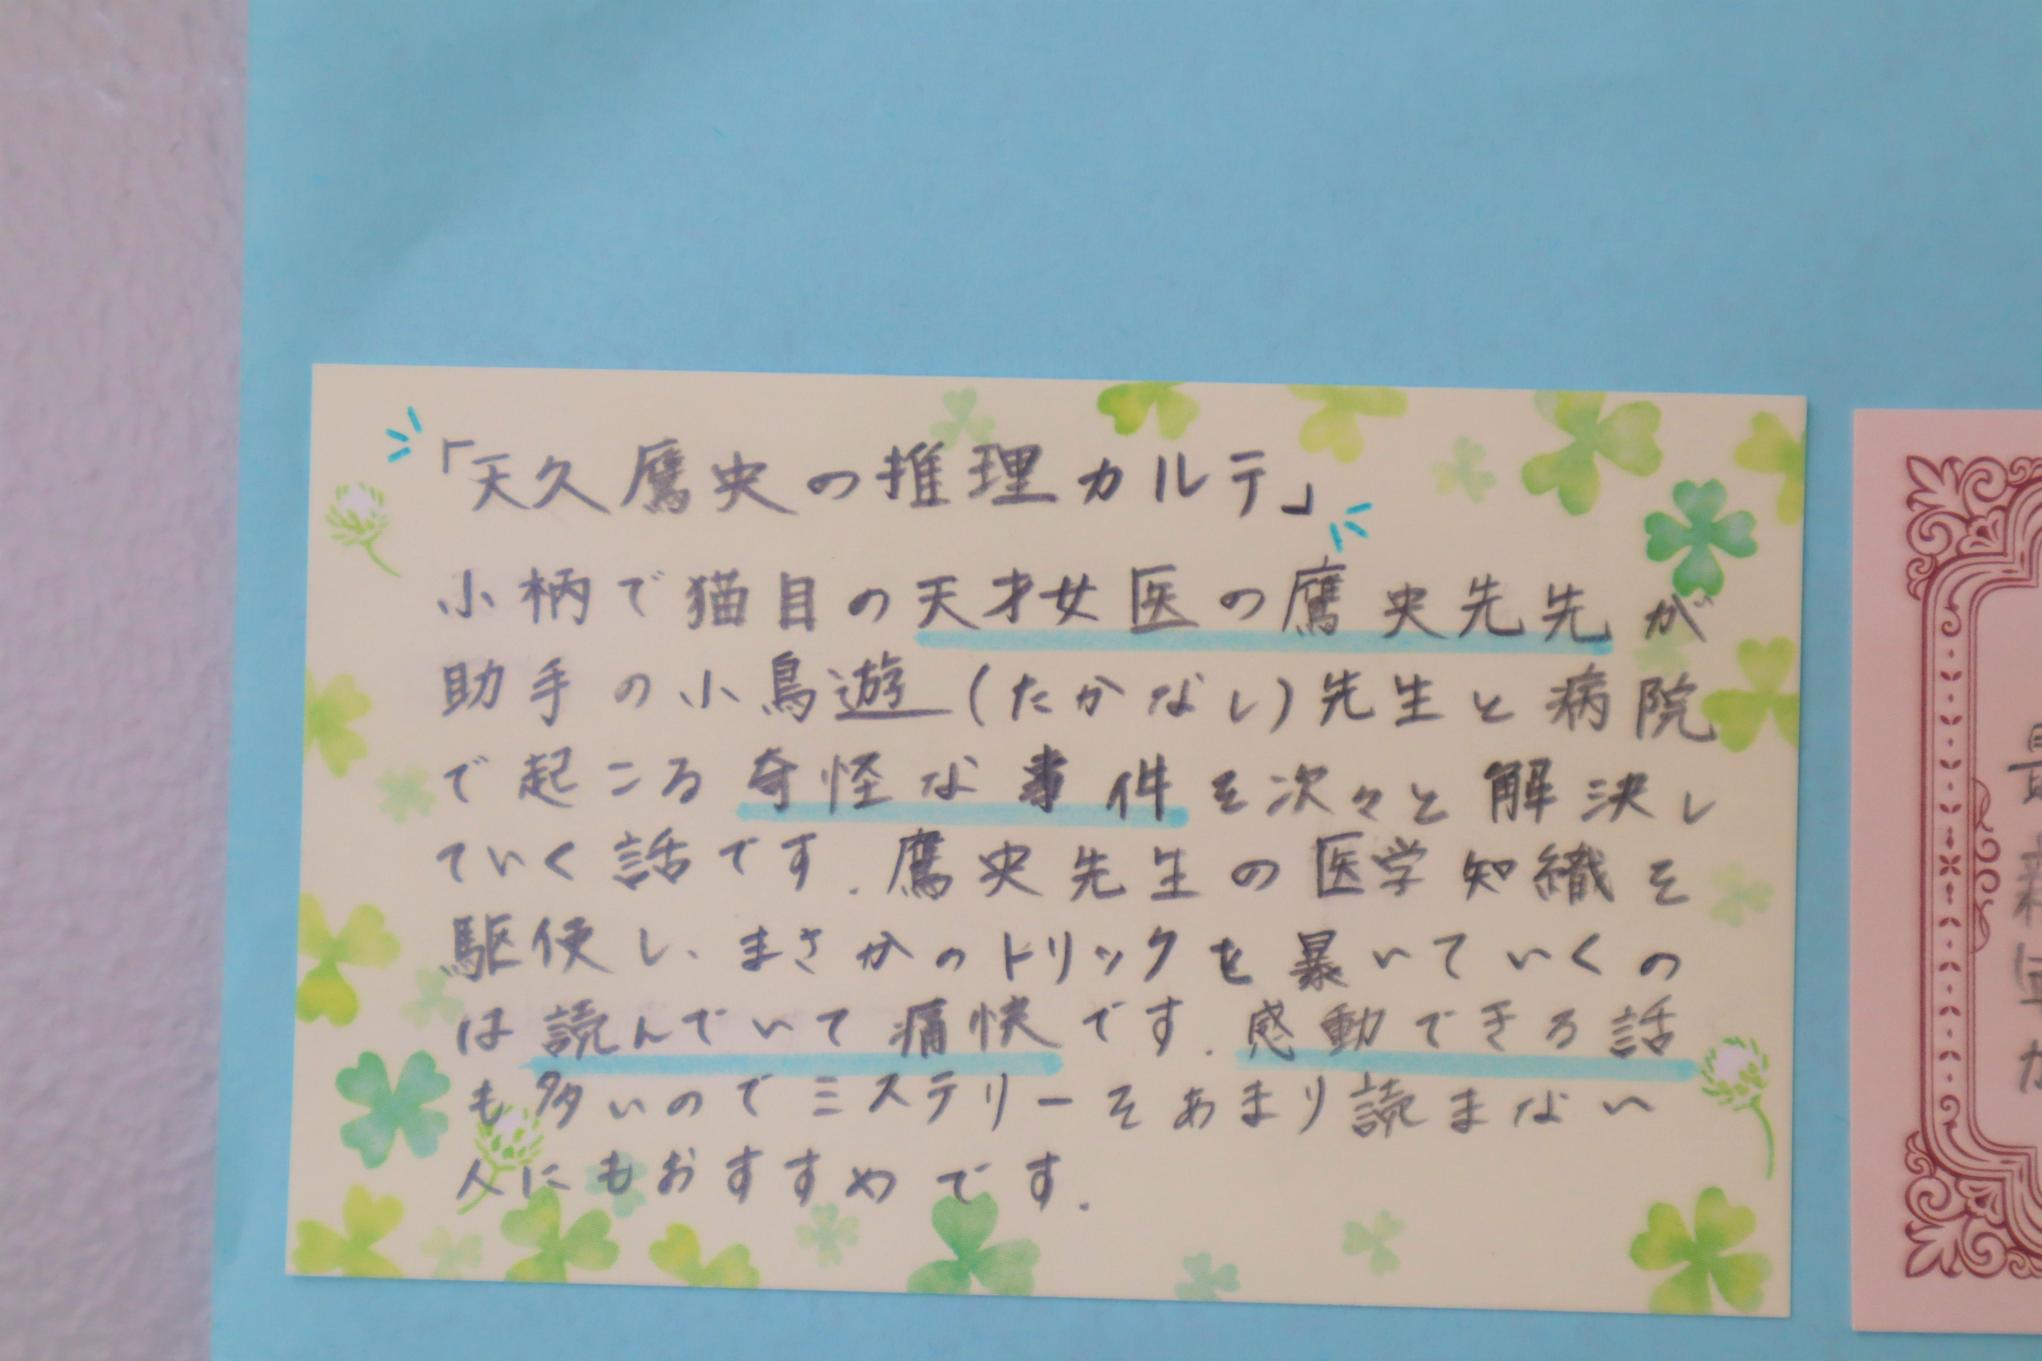 「天久鷹央の推理カルテ」
小柄で猫目の天才女医の鷹央先先が
助手の小鳥遊(たかなし)先生と病院
で起こる奇怪な事件を次々と解決し
ていく話です.鷹央先生の医学知織を
駆使し、まさかのトリックを暴いていくの
は読んでいて痛快です.感動できる話
も多いのでミステリーをあまり読まない
人にもおすすめです.
最
新